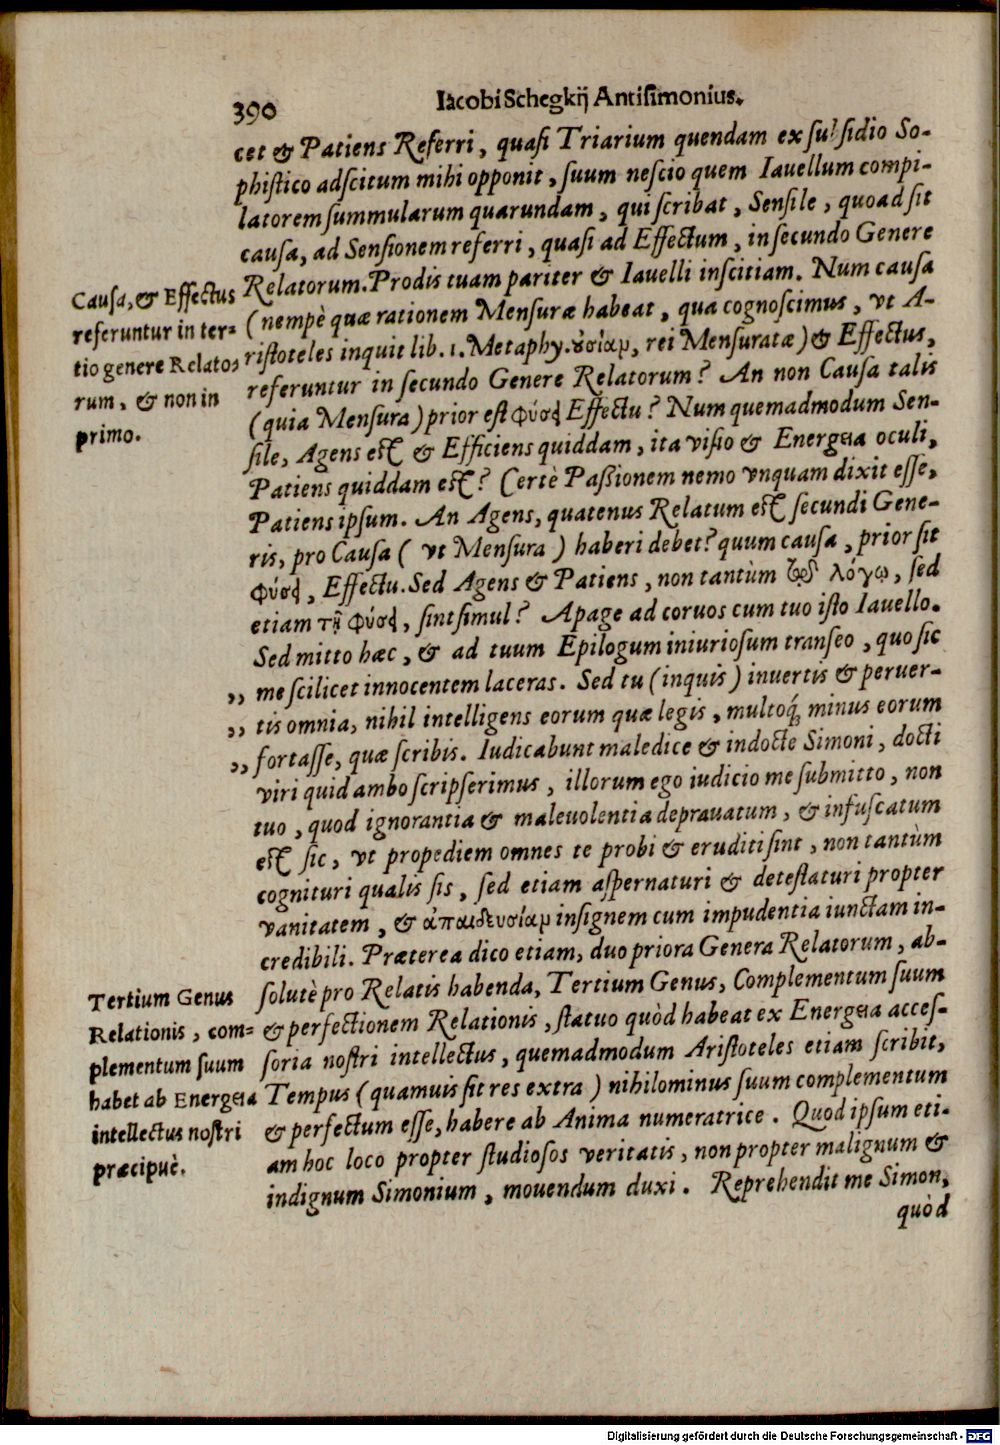 390
Iacobi Schegkij Antisimonius.
cet & Patiens Referri, quasi Triarium quendam ex subsidio So-
phistico adscitum mihi opponit, suum nescio quem Iauellum compi-
latorem summularum quarundam, qui scribat, Sensile, quoad sit
causa, ad Sensionem referri, quasi ad Effectum, in secundo Genere
Relatorum. Prodis tuam pariter & Iauelli inscitiam. Num causa
(nempè quæ rationem Mensuræ habeat, qua cognoscimus, vt A-
ristoteles inquit lib. 1. Metaphy. ȣ̓σίαμ, rei Mensuratæ) & Effectus,
referuntur in secundo Genere Relatorum? An non Causa talis
(quia Mensura) prior est φύσει Effectu? Num quemadmodum Sen-
sile, Agens est & Efficiens quiddam, ita visio & Energeia oculi,
Patiens quiddam est? Certè Passionem nemo vnquam dixit esse,
Patiens ipsum. An Agens, quatenus Relatum est secundi Gene-
ris, pro Causa ( vt Mensura ) haberi debet? quum causa, prior sit
φύσει, Effectu. Sed Agens & Patiens, non tantùm λόγῳ, sed
etiam τῇ φύσει, sint simul? Apage ad coruos cum tuo isto Iauello.
Sed mitto hæc, & ad tuum Epilogum iniuriosum transeo, quo sic
,, me scilicet innocentem laceras. Sed tu (inquis) inuertis & peruer-
,, tis omnia, nihil intelligens eorum quæ legis, multoq́; minus eorum
,, fortasse, quæ scribis. Iudicabunt maledice & indocte Simoni, docti
viri quid ambo scripserimus, illorum ego iudicio me submitto, non
tuo, quod ignorantia & maleuolentia deprauatum, & infuscatum
est sic, vt propediem omnes te probi & eruditi sint, non tantùm
cognituri qualis sis, sed etiam aspernaturi & detestaturi propter
vanitatem, & ἀπαιδευσίαμ insignem cum impudentia iunctam in-
credibili. Præterea dico etiam, duo priora Genera Relatorum, ab-
solutè pro Relatis habenda, Tertium Genus, Complementum suum
& perfectionem Relationis, statuo quòd habeat ex Energeia acces-
soria nostri intellectus, quemadmodum Aristoteles etiam scribit,
Tempus (quamuis sit res extra) nihilominus suum complementum
& perfectum esse, habere ab Anima numeratrice. Quod ipsum eti-
am hoc loco propter studiosos veritatis, non propter malignum &
indignum Simonium, mouendum duxi. Reprehendit me Simon,
quòd
Causa, & Effectus
referuntur in ter=
tio genere Relato=
rum, & non in
primo.
Tertium Genus
Relationis, com=
plementum suum
habet ab Energeia
intellectus nostri
præcipuè.
Digitalisierung gefördert durch die Deutsche Forschungsgemeinschaft - DFG